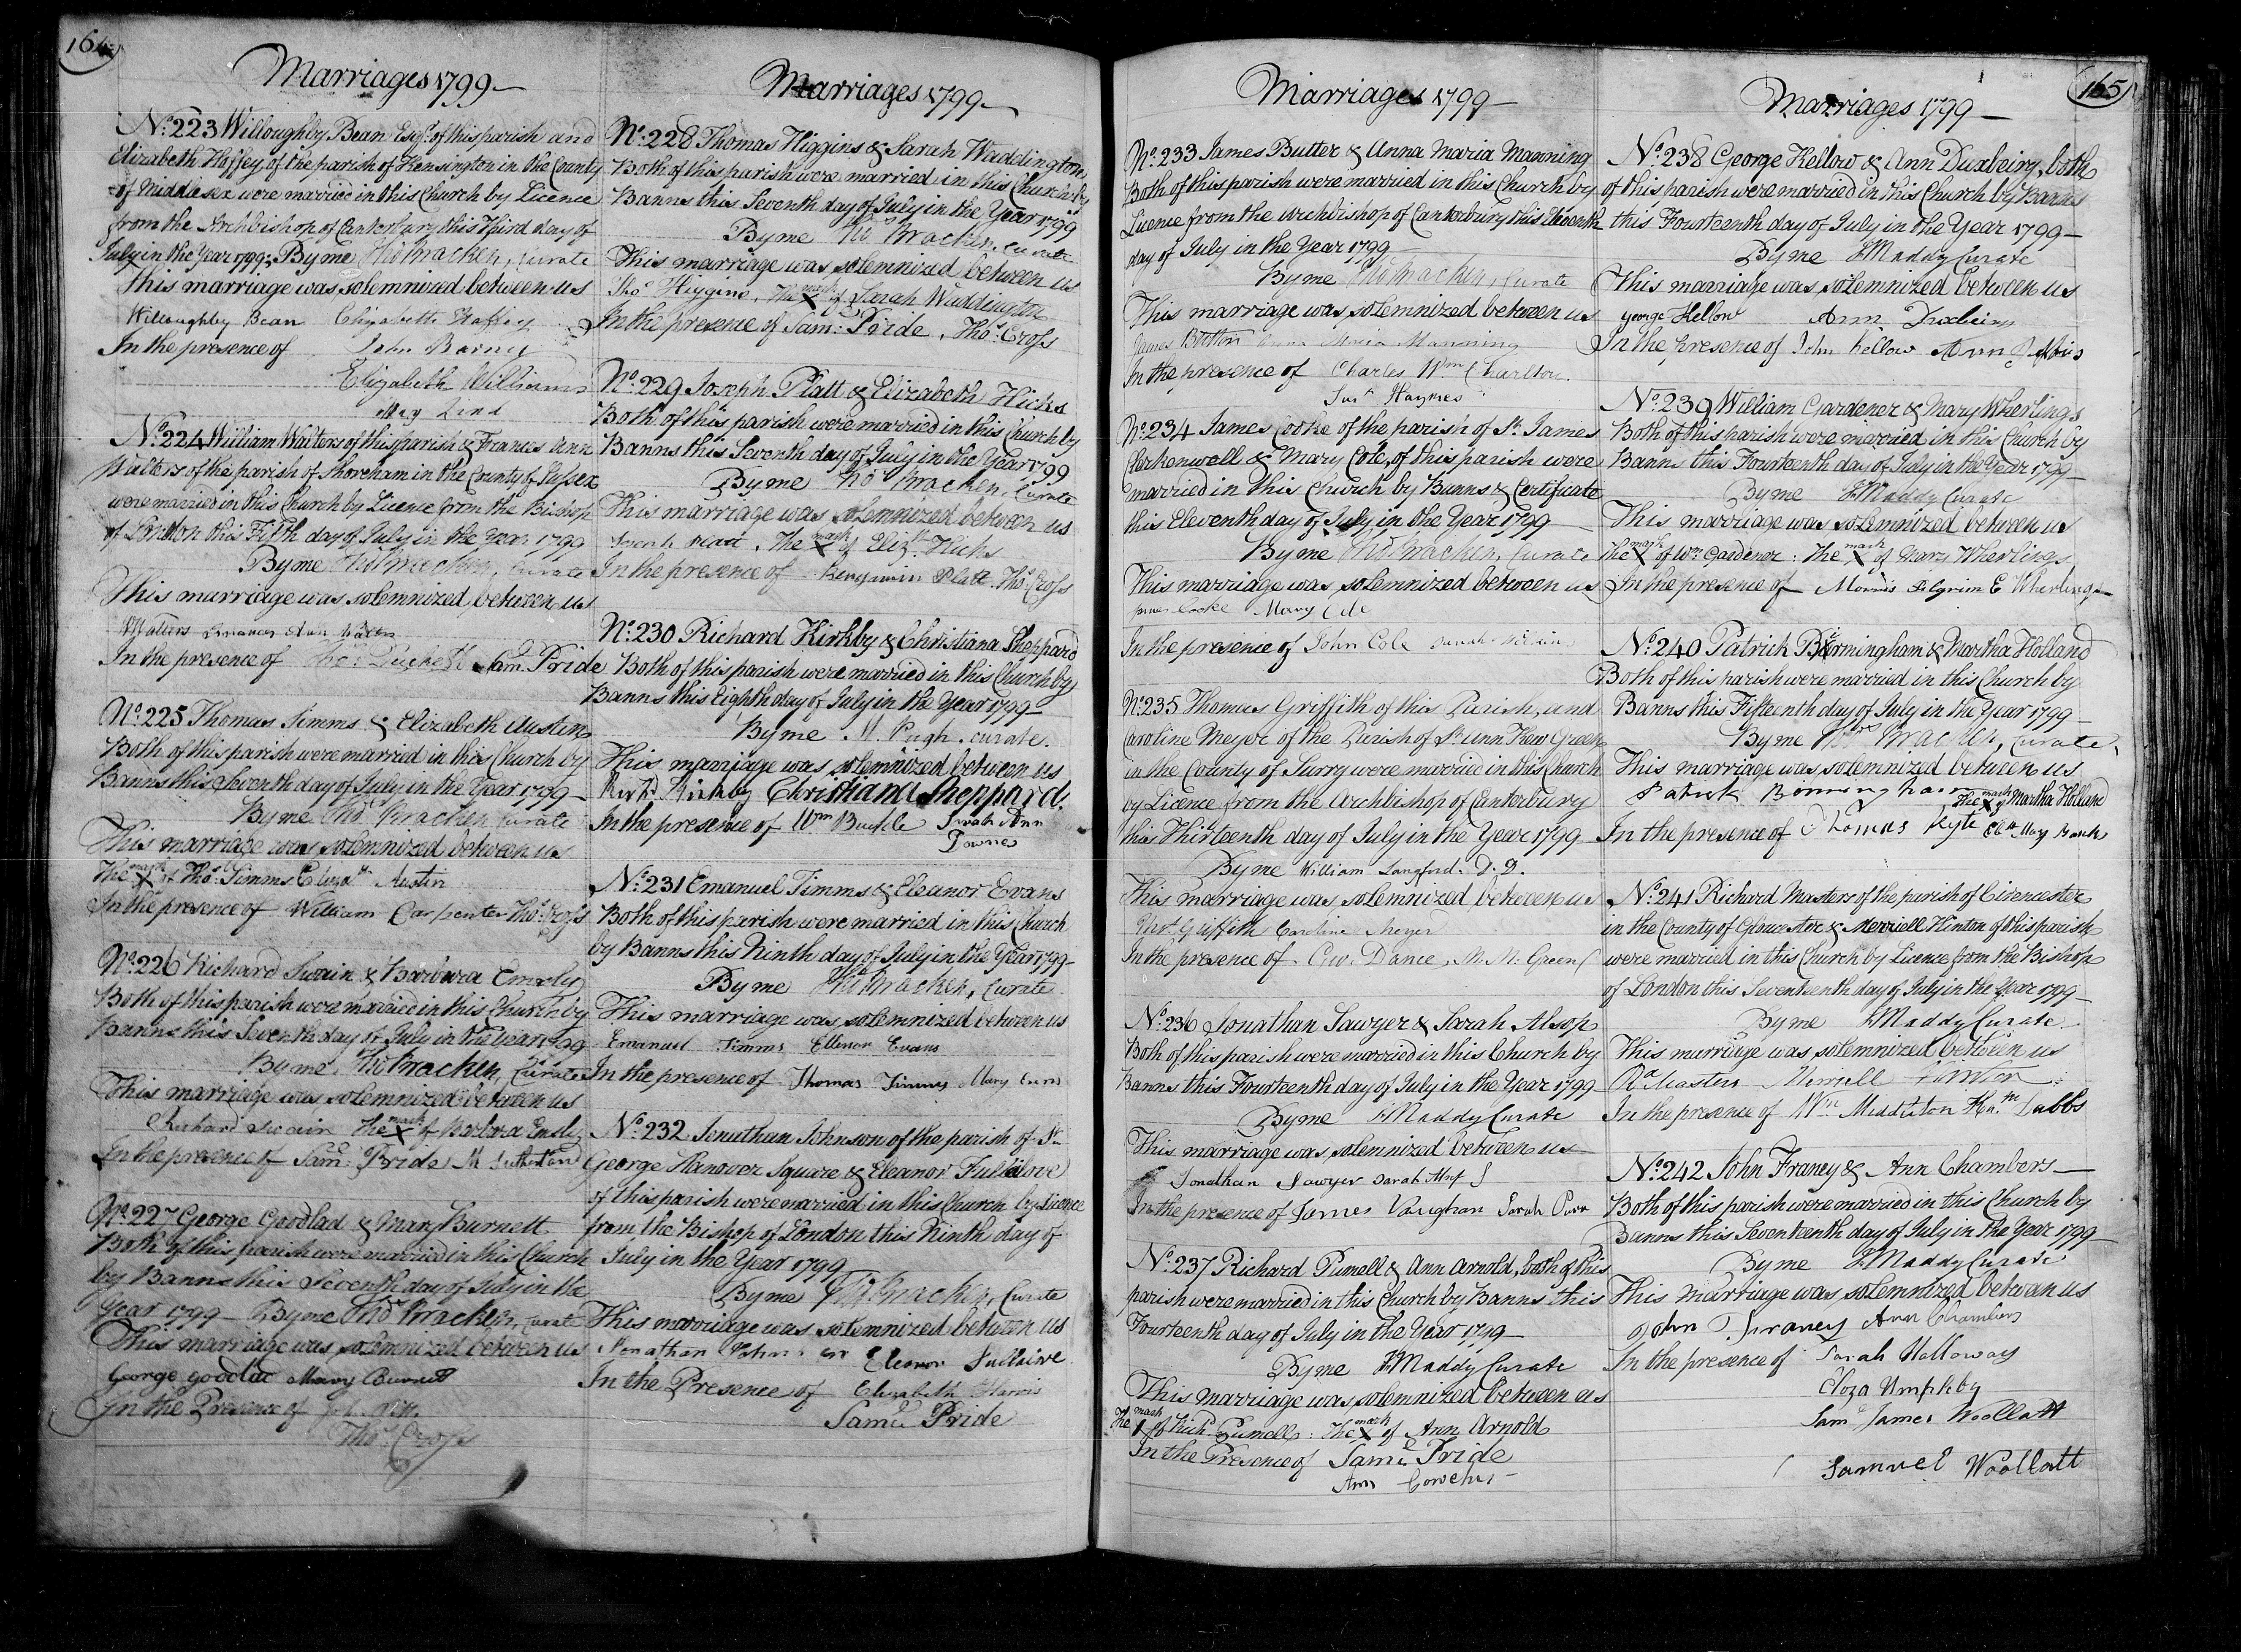 164
Marriages 1799
No. 223 Willoughby Bean Esqr. of this parish and
Elizabeth Haffey, of the parish of Kensington in the County
of Middlesex were married in this Church by Licence
from the Archbishop of Canterbury this Third day of
July in the Year 1799; By me Thos Bracken, Curate
This marriage was solemnized between us
Willoughby Bean Elizabeth Haffey
In the presence of John Barney
Elizabeth Williams
May Lind
No. 224 William Walters of this parish & Frances Ann
Walters of the parish of Shoreham in the County of Sussex
were married in this Church by Licence from the Bishop
of London this Fifth day of July in the Year 1799
By me Thos Bracken, Curate
This marriage was solemnized between us
Walters Frances Ann Walters
In the presence of Thos. Puckett Saml. Pride
No. 225 Thomas Simms & Elizabeth Austin
Both of this parish were married in this Church by
Banns this Seventh day of July in the Year 1799
By me Thos Bracken, Curate
This marriage was solemnized between us
The mark X of Thos. Simms Elizath Austin
In the presence of William Carpenter Thos. Cross
No. 226 Richard Swain & Barbara Emsly
Both of this parish were married in this Church by
Banns this Seventh day of July in the Year 1799
By me, Thos Bracken, Curate
This marriage was solemnized between us
Richard Swain The mark X of Barbara Emsly
In the presence of Saml. Pride M Sutherland
No. 227 George Goodlad & Mary Burnett
Both of this parish were married in this Church
by Banns this Seventh day of July in the
Year 1799 — By me Thos Bracken, Curate
This marriage was solemnized between us
George Goodlad Mary Burnett
In the Presence of John
Thos. Cross
Marriages 1799
No. 228 Thomas Higgins & Sarah Waddington,
Both of this parish were married in this Church by
Banns this Seventh day of July in the Year 1799
By me Thos Bracken, Curate
This marriage was solemnized between us
Thos Higgins, The mark X of Sarah Waddington
In the presence of Saml. Pride, Thos. Cross
No. 229 Joseph Platt & Elizabeth Hicks
Both of this parish were married in this Church by
Banns this Seventh day of July in the Year 1799
By me Thos Bracken, Curate
This marriage was solemnized between us
Joseph Platt, The mark X of Elizth Hicks
In the presence of Benjamin Platt. Thos. Cross
No. 230 Richard Kirkby & Christiana Sheppard
Both of this parish were married in this Church by
Banns this Eighth day of July in the Year 1799
By me M. Pugh. curate.
This marriage was solemnized between us
Richd. Kirkby Christiana Sheppard.
In the presence of Wm Buckle Sarah Ann
Towne
No. 231 Emanuel Timms & Eleanor Evans
Both of this parish were married in this Church
by Banns this Ninth day of July in the Year 1799
By me Thos Bracken, Curate
This marriage was solemnized between us
Emanuel Timms Ellenor Evans
In the presence of Thomas Timms Mary
No. 232 Jonathan Johnson of the parish of St.
George Hanover Square & Eleanor Fullilove
of this parish were married in this Church by Licence
from the Bishop of London this Ninth day of
July in the Year 1799
By me Thos Bracken, Curate
This marriage was solemnized between us
Jonathan Johnson Eleanor Fullilove
In the Presence of Elizabeth Harris
Saml Pride
Marriages 1799
No. 233 James Butter & Anna Maria Manning
Both of this parish were married in this Church by
Licence from the Archbishop of Canterbury this Eleventh
day of July in the Year 1799
By me Thos Bracken, Curate
This marriage was solemnized between us
James Butter Anna Maria Manning
In the presence of Charles Wm Charlton.
Haynes
No. 234 James Cooke of the parish of St. James
Clerkenwell & Mary Cole, of this parish were
married in this Church by Banns & Certificate
this Eleventh day of July in the Year 1799
By me Thos Bracken, Curate
This marriage was solemnized between us
James Cooke Mary Cole
In the presence of John Cole Sarah
No. 235 Thomas Griffith of this Parish, and
Caroline Meyer of the Parish of St. Ann Kew Green
in the County of Surry were married in this Church
by Licence from the Archbishop of Canterbury
this Thirteenth day of July in the Year 1799
By me William Langford. D. D.
This marriage was solemnized between us
Thos. Griffith Caroline Meyer
In the presence of Geo. Dance, M. M. Green
No. 236 Jonathan Sawyer & Sarah Alsop
Both of this parish were married in this Church by
Banns this Fourteenth day of July in the Year 1799
By me H Maddy Curate
This marriage was solemnized between us
Jonathan Sawyer Sarah
In the presence of James Vaughan Sarah Parr
No. 237 Richard Pumell & Ann Arnold, both of this
parish were married in this Church by Banns this
Fourteenth day of July in the Year 1799
By me H Maddy Curate
This marriage was solemnized between us
The mark X of Richd. Pumell: The mark X of Ann Arnold
In the Presence of Saml Pride
Ann
165
Marriages 1799
No. 238 George Kellow & Ann Duxbeiry, both
of this parish were married in this Church by Banns
this Fourteenth day of July in the Year 1799
By me H Maddy Curate
This marriage was solemnized between us
George Kellow Ann Duxbeiry
In the presence of John Kellow Ann
No. 239 William Gardener & Mary Wherlings
Both of this parish were married in this Church by
Banns this Fourteenth day of July in the Year 1799
By me H Maddy Curate
This marriage was solemnized between us
The mark X of Wm Gardener: The mark X of Mary Wherlings
In the presence of Morris Pilgrim E Wherlings
No. 240 Patrick Birmingham & Martha Holland
Both of this parish were married in this Church by
Banns this Fifteenth day of July in the Year 1799
By me Thos Bracken, Curate,
This marriage was solemnized between us
Patrick Birmingham The mark X of Martha Holland
In the presence of Thomas Ryte Elth Mary
No. 241 Richard Masters of the parish of Cirencester
in the County of Gloucester & Merriell Hinton of this parish
were married in this Church by Licence from the Bishop
of London this Seventeenth day of July in the Year 1799
By me H Maddy Curate.
This marriage was solemnized between us
Rd Masters Merriell Hinton
In the presence of Wm Middleton Tubbs
No. 242 John Franey & Ann Chambers
Both of this parish were married in this Church by
Banns this Seventeenth day of July in the Year 1799
By me H Maddy Curate
This marriage was solemnized between us
John Franey Ann Chambers
In the presence of Sarah Holloway
Eliza Umphby
Saml James Woollatt
Samuel Woollatt